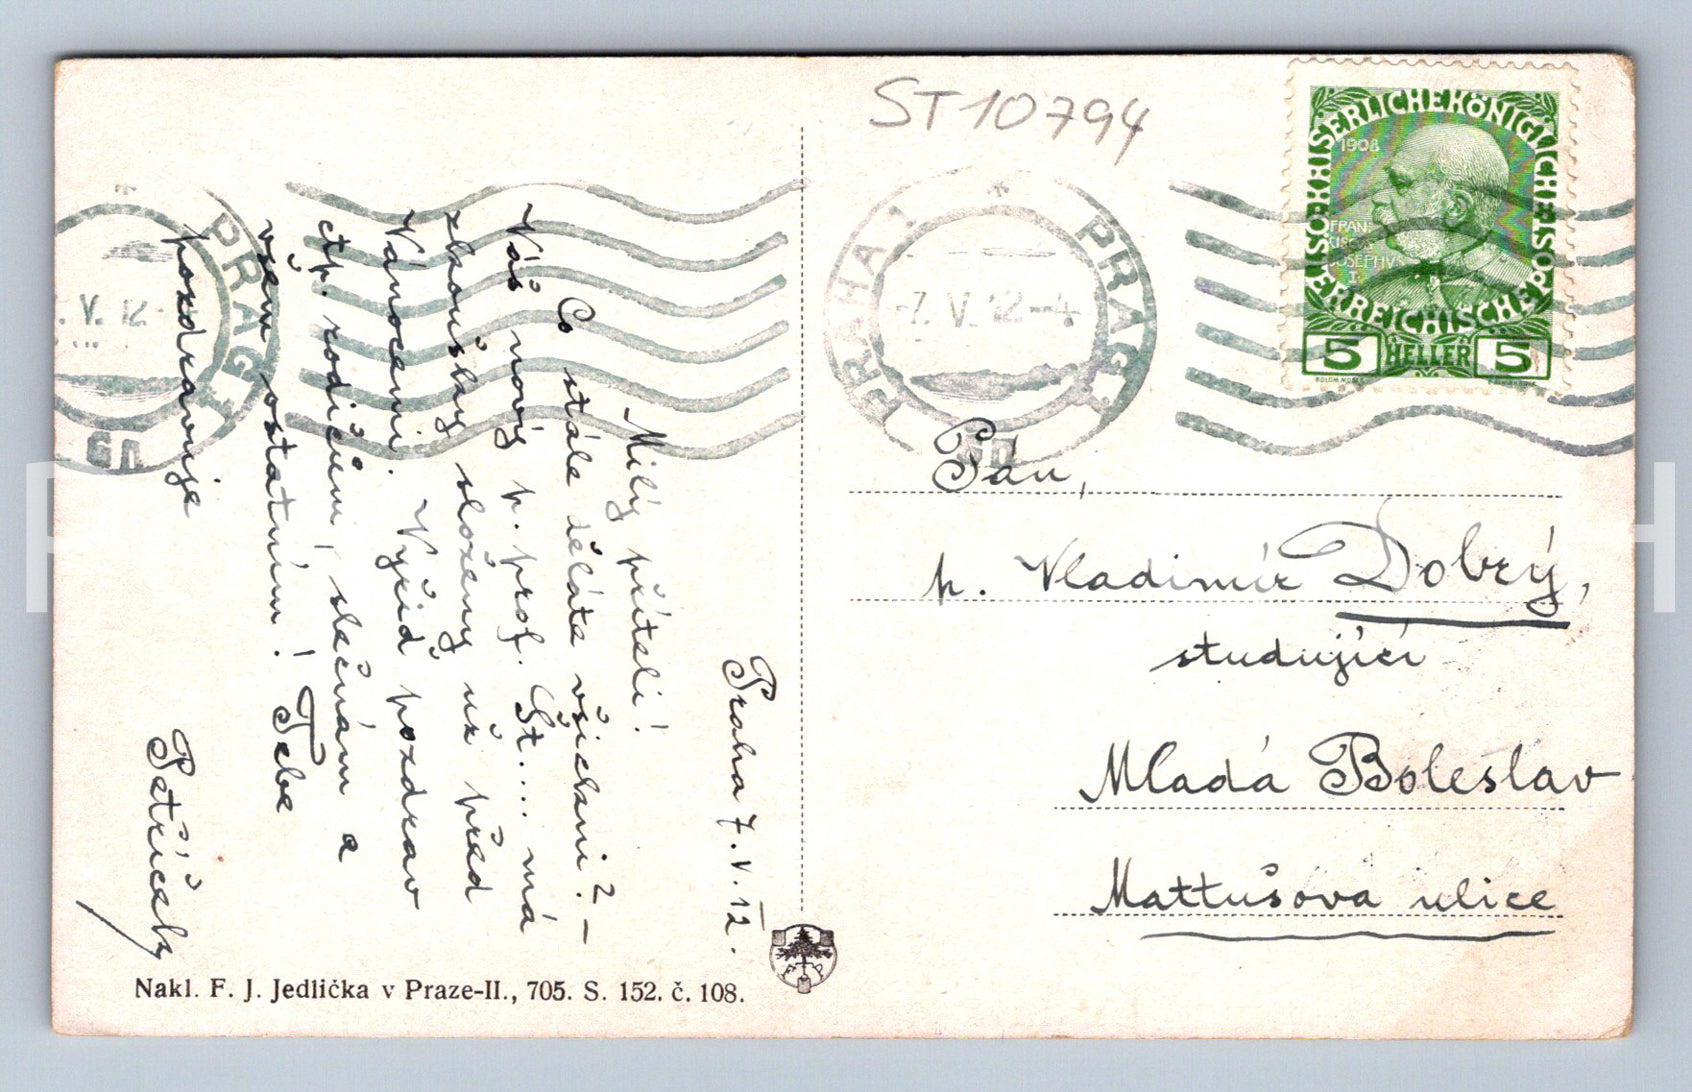 ST10794
KAISERLICHE KÖNIGLICHE ÖSTERREICHISCHE POST
1908
FRAN
CISCVS
JOSEPHVS
I.
5 HELLER 5
PRAHA 1 * PRAG 1
-7. V. 12-4
PRAG 1
. V. 12-
Praha 7.V.12.
Milý příteli!
Co stále děláte všichni? –
Váš nový p. prof. Št.... má
zkoušky složeny už před
Vánocemi. Vyřiď pozdrav
ct p. rodičům, slečnám a
všem ostatním! Tebe
pozdravuje
Petříček
Pán,
p. Vladimír Dobrý,
studující
Mladá Boleslav
Mattušova ulice
Nakl. F. J. Jedlička v Praze-II., 705. S. 152. č. 108.
F P